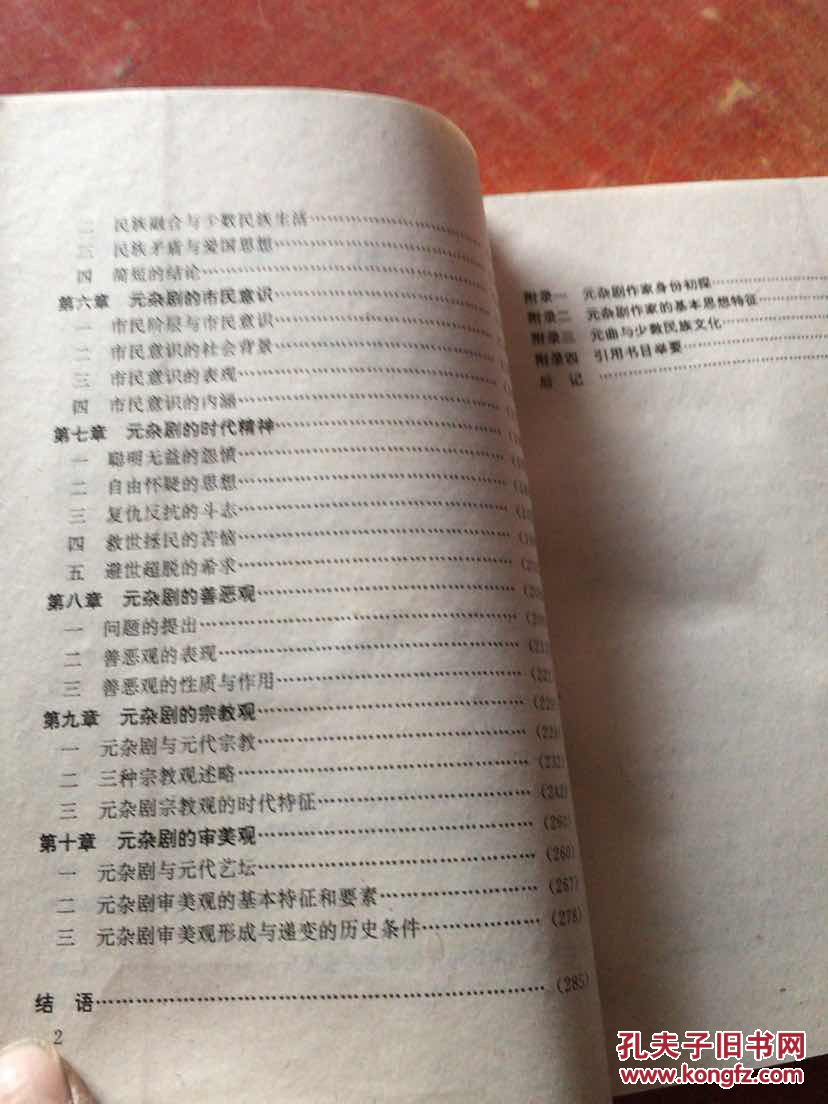 二 民族融合与少数民族生活
三 民族矛盾与爱国思想
四 简短的结论
第六章 元杂剧的市民意识
一 市民阶层与市民意识
二 市民意识的社会背景
三 市民意识的表现
四 市民意识的内涵
第七章 元杂剧的时代精神
一 聪明无益的怨愤
二 自由怀疑的思想
三 复仇反抗的斗志
四 救世拯民的苦恼
五 避世超脱的希求
第八章 元杂剧的善恶观
一 问题的提出
二 善恶观的表现
三 善恶观的性质与作用
第九章 元杂剧的宗教观
一 元杂剧与元代宗教
二 三种宗教观述略……(232)
三 元杂剧宗教观的时代特征……(242)
第十章 元杂剧的审美观
一 元杂剧与元代艺坛……(260)
二 元杂剧审美观的基本特征和要素……(267)
三 元杂剧审美观形成与递变的历史条件……(278)
结 语……(285)
2
附录一 元杂剧作家身份初探
附录二 元杂剧作家的基本思想特征
附录三 元曲与少数民族文化
附录四 引用书目举要
后 记
孔夫子旧书网
www.kongfz.com